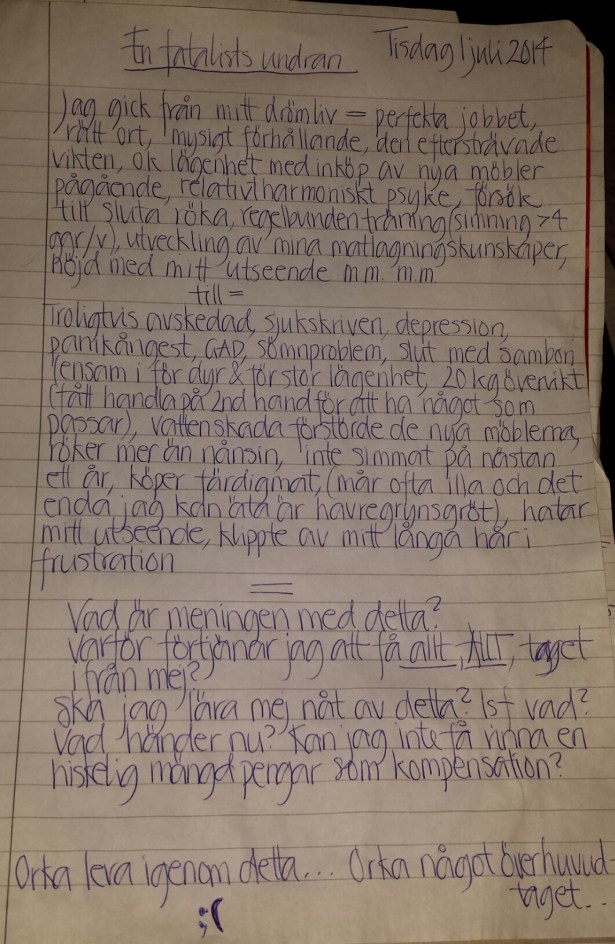 En fatalists undran Tisdag 1 juli 2014
Jag gick från mitt drömliv = perfekta jobbet,
rätt ort, mysigt förhållande, den eftersträvade
vikten, ok lägenhet med inköp av nya möbler
pågående, relativt harmoniskt psyke, försök
till sluta röka, regelbunden träning (simning >4
ggr/v), utveckling av mina matlagningskunskaper,
nöjd med mitt utseende m.m. m.m.
till =
Troligtvis avskedad, sjukskriven, depression,
panikångest, GAD, sömnproblem, slut med sambon
(ensam i för dyr & för stor lägenhet, 20 kg övervikt
(fått handla på 2nd hand för att ha något som
passar), vattenskada förstörde de nya möblerna,
röker mer än nånsin, inte simmat på nästan
ett år, köper färdigmat, (mår ofta illa och det
enda jag kan äta är havregrynsgröt), hatar
mitt utseende, klippte av mitt långa hår i
frustration
=
Vad är meningen med detta?
Varför förtjänar jag att få allt, ALLT, taget
ifrån mej?
Ska jag lära mej nåt av detta? Isf vad?
Vad händer nu? Kan jag inte få vinna en
hiskelig mängd pengar som kompensation?
Orka leva igenom detta... Orka något överhuvud-
taget..
;(